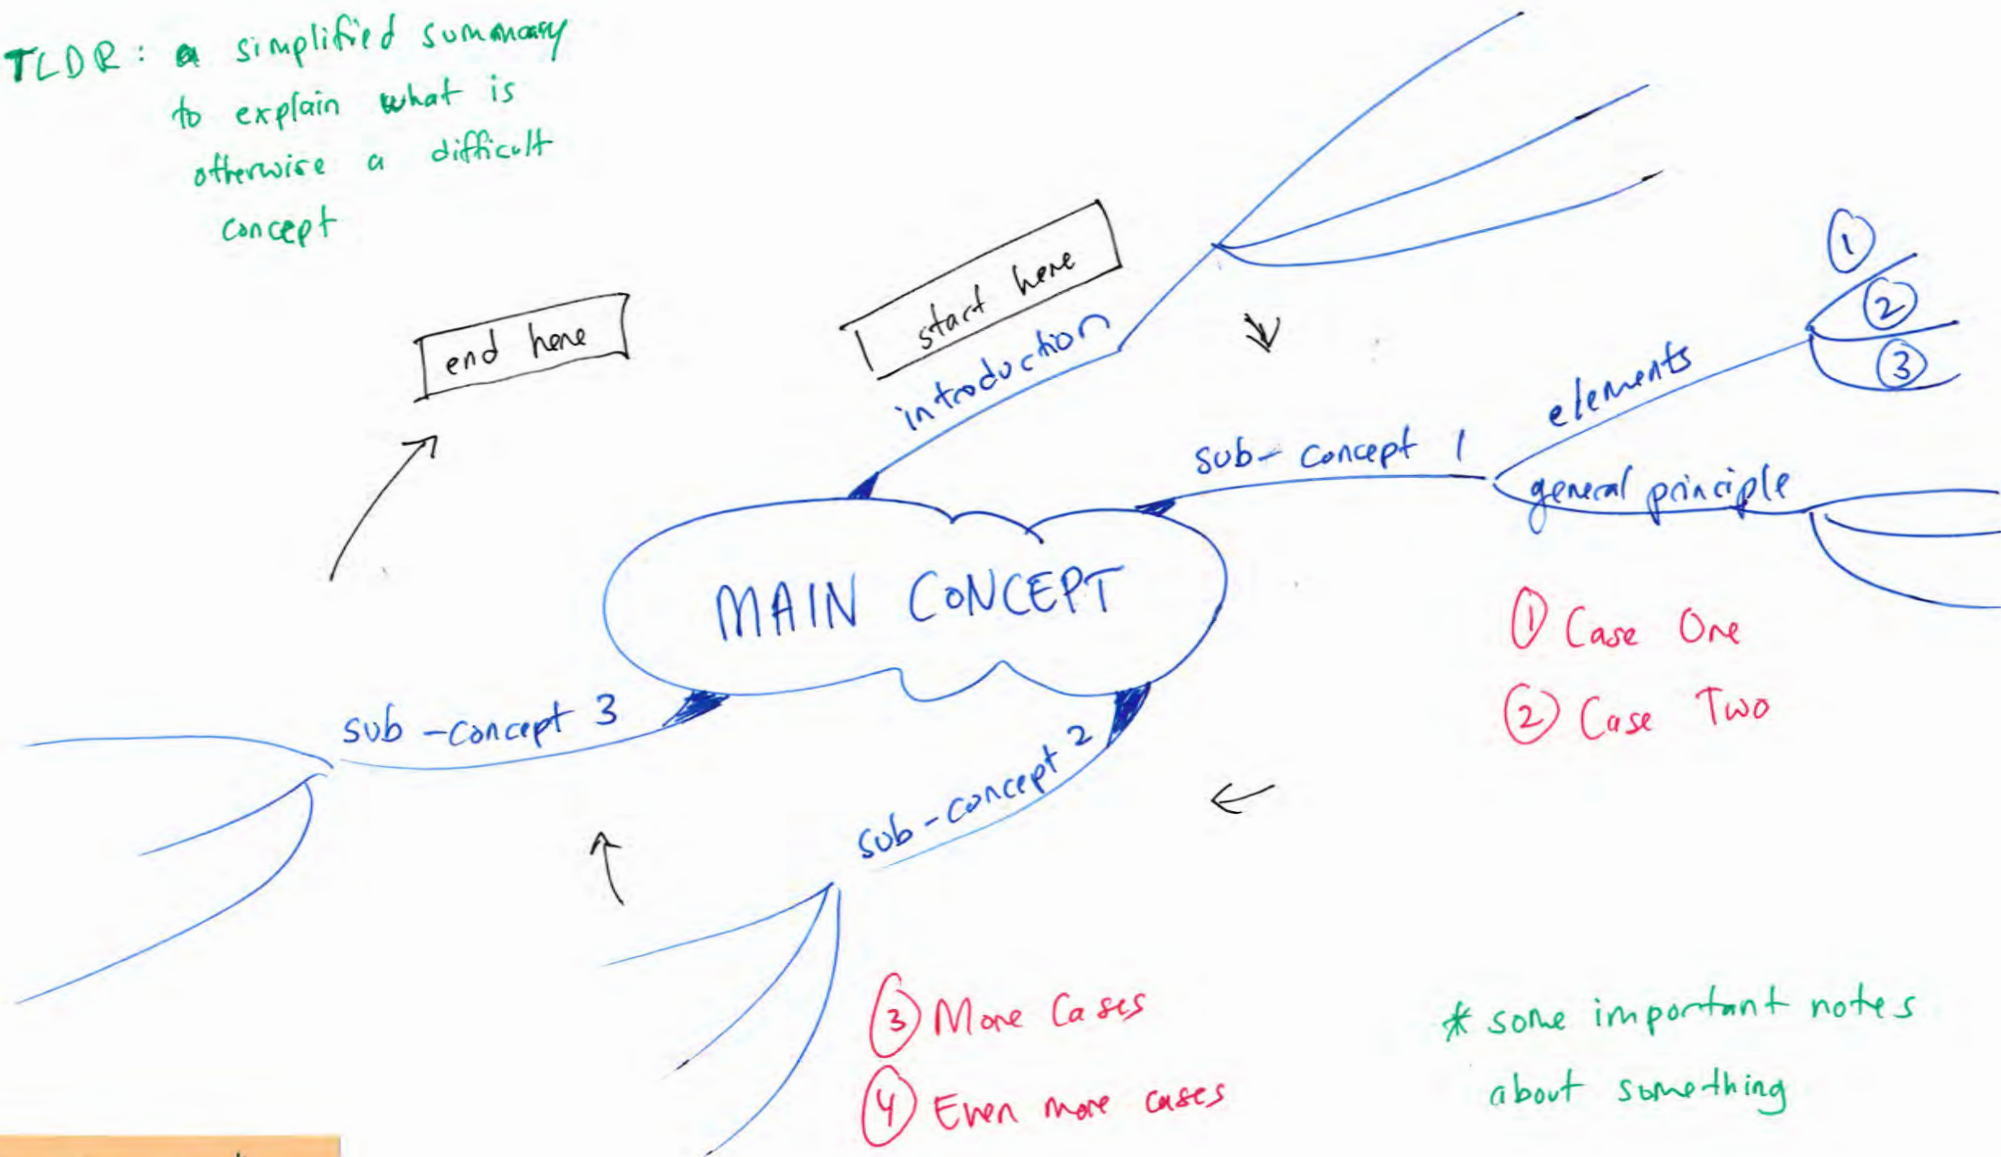 TLDR: a simplified summary
to explain what is
otherwise a difficult
concept
end here
start here
introduction
①
②
③
elements
sub-concept 1
general principle
MAIN CONCEPT
① Case One
② Case Two
sub-concept 3
sub-concept 2
③ More Cases
④ Even more cases
* some important notes
about something